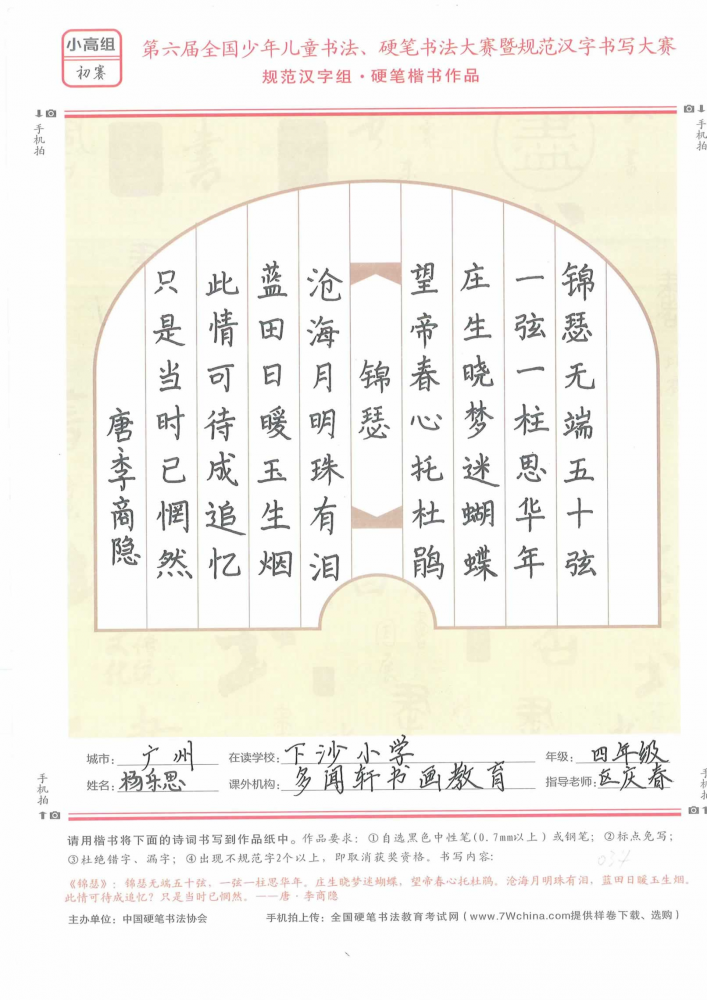 小高组
初赛
第六届全国少年儿童书法、硬笔书法大赛暨规范汉字书写大赛
规范汉字组·硬笔楷书作品
手机拍
手机拍
锦瑟无端五十弦
一弦一柱思华年
庄生晓梦迷蝴蝶
望帝春心托杜鹃
锦瑟
沧海月明珠有泪
蓝田日暖玉生烟
此情可待成追忆
只是当时已惘然
唐李商隐
城市：广州 在读学校：下沙小学 年级：四年级
姓名：杨乐思 课外机构：多闻轩书画教育 指导老师：区庆春
手机拍
手机拍
请用楷书将下面的诗词书写到作品纸中。作品要求：①自选黑色中性笔(0.7mm以上)或钢笔；②标点免写；
③杜绝错字、漏字；④出现不规范字2个以上，即取消获奖资格。书写内容：
034
《锦瑟》：锦瑟无端五十弦，一弦一柱思华年。庄生晓梦迷蝴蝶，望帝春心托杜鹃。沧海月明珠有泪，蓝田日暖玉生烟。
此情可待成追忆？只是当时已惘然。——唐·李商隐
主办单位：中国硬笔书法协会 手机拍上传：全国硬笔书法教育考试网（www.7Wchina.com提供样卷下载、选购）